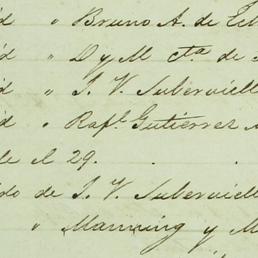 id " Bruno A. de
id " D y M Cta de
id " J. V. Subervielle
id " Rafl. Gutierrez
el 29. . .
do de J. V. Subervielle
" Manning y M